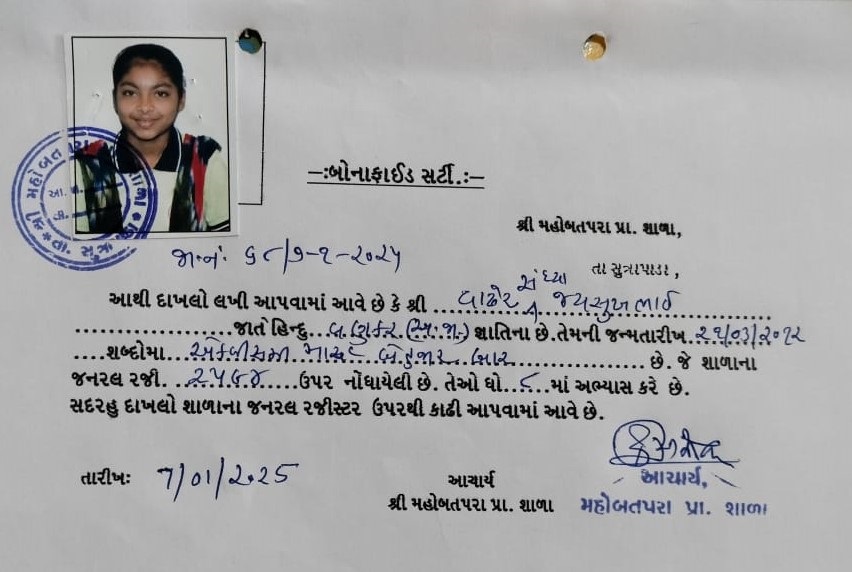 -:બોનાફાઈડ સર્ટી.:-
શ્રી મહોબતપરા પ્રા. શાળા,
જા.નં: ૬૮/૭-૧-૨૦૨૫
તા સુત્રાપાડા,
આથી દાખલો લખી આપવામાં આવે છે કે શ્રી વાઢેર સંધ્યા જયસુખભાઈ
જાતે હિન્દુ વણકર (અ.જા.) જ્ઞાતિના છે. તેમની જન્મતારીખ ૨૧/૦૩/૨૦૧૨
શબ્દોમા એકવીસમી માર્ચ બેહજાર બાર છે. જે શાળાના
જનરલ રજી. ૨૫૬૪ ઉપર નોંધાયેલી છે. તેઓ ધો. ૮ માં અભ્યાસ કરે છે.
સદરહુ દાખલો શાળાના જનરલ રજીસ્ટર ઉપરથી કાઢી આપવામાં આવે છે.
તારીખઃ 7/01/2025
આચાર્ય
શ્રી મહોબતપરા પ્રા. શાળા
આચાર્ય,
મહોબતપરા પ્રા. શાળા